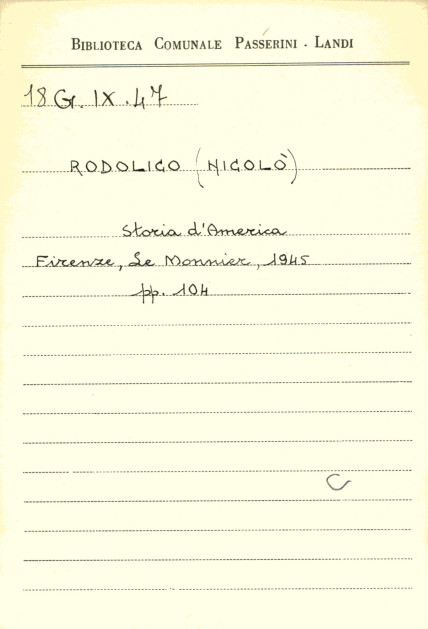 BIBLIOTECA COMUNALE PASSERINI - LANDI
18 G. IX. 47
RODOLICO (NICOLÒ)
Storia d'America
Firenze, Le Monnier, 1945
pp. 104
C